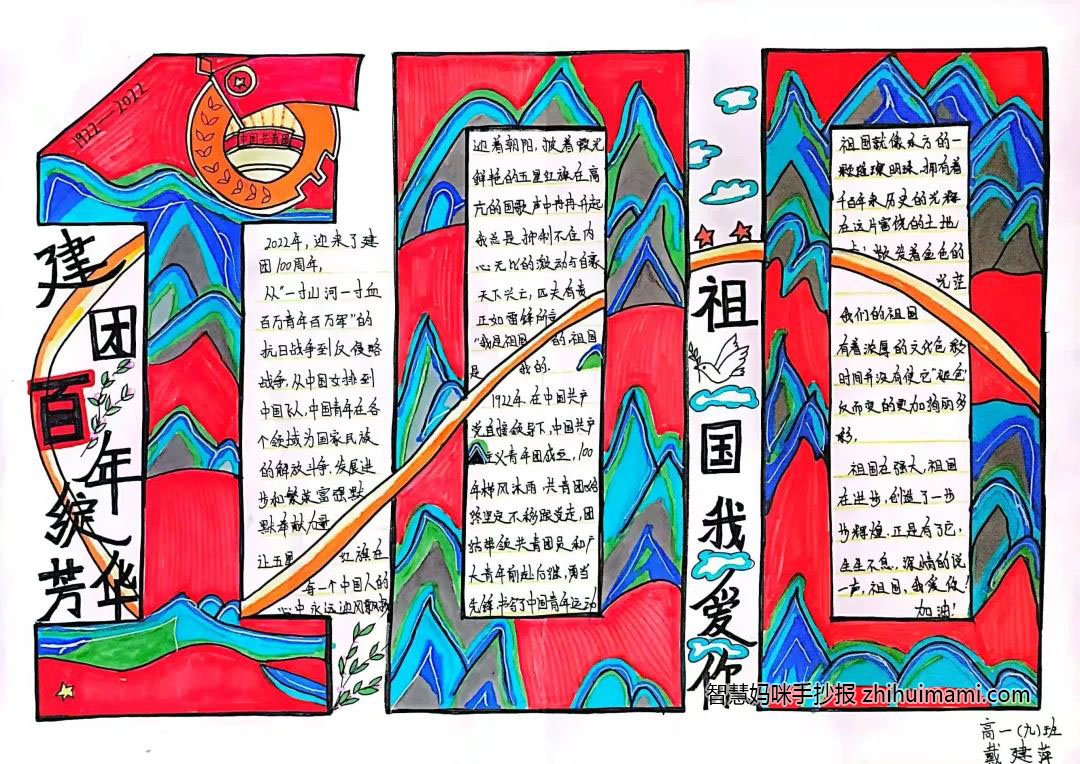 1922—2022
中国共青团
建团百年绽芳华
2022年,迎来了建
团100周年,
从“一寸山河一寸血
百万青年百万军”的
抗日战争到反侵略
战争,从中国女排到
中国飞人,中国青年在各
个领域为国家民族
的解放斗争,发展进
步和繁荣富强默
默奉献力量
让五星 红旗在
每一个中国人的
心中永远迎风飘扬
迎着朝阳,披着霞光
鲜艳的五星红旗在高
亢的国歌声中冉冉升起
我总是抑制不住内
心无比的激动与自豪
天下兴亡,匹夫有责
正如雷锋所言
“我是祖国 的,祖国
是 我的.
1922年,在中国共产
党直接领导下,中国共产
主义青年团成立,100
年栉风沐雨,共青团始
终坚定不移跟党走,团
结带领共青团员和广
大青年前赴后继,勇当
先锋,书写了中国青年运动
祖国我爱你
祖国就像东方的一
颗璀璨明珠,拥有着
千百年来历史的光辉
在这片富饶的土地
上散发着金色的
光茫
我们的祖国
有着浓厚的文化色彩
时间并没有使它“褪色”
反而变的更加绚丽多
彩.
祖国在强大,祖国
在进步,创造了一步
步辉煌,正是有了它,
生生不息,深情的说
一声,祖国,我爱你!
加油!
智慧妈咪手抄报 zhihuimami.com
高一(九)班
戴建萍